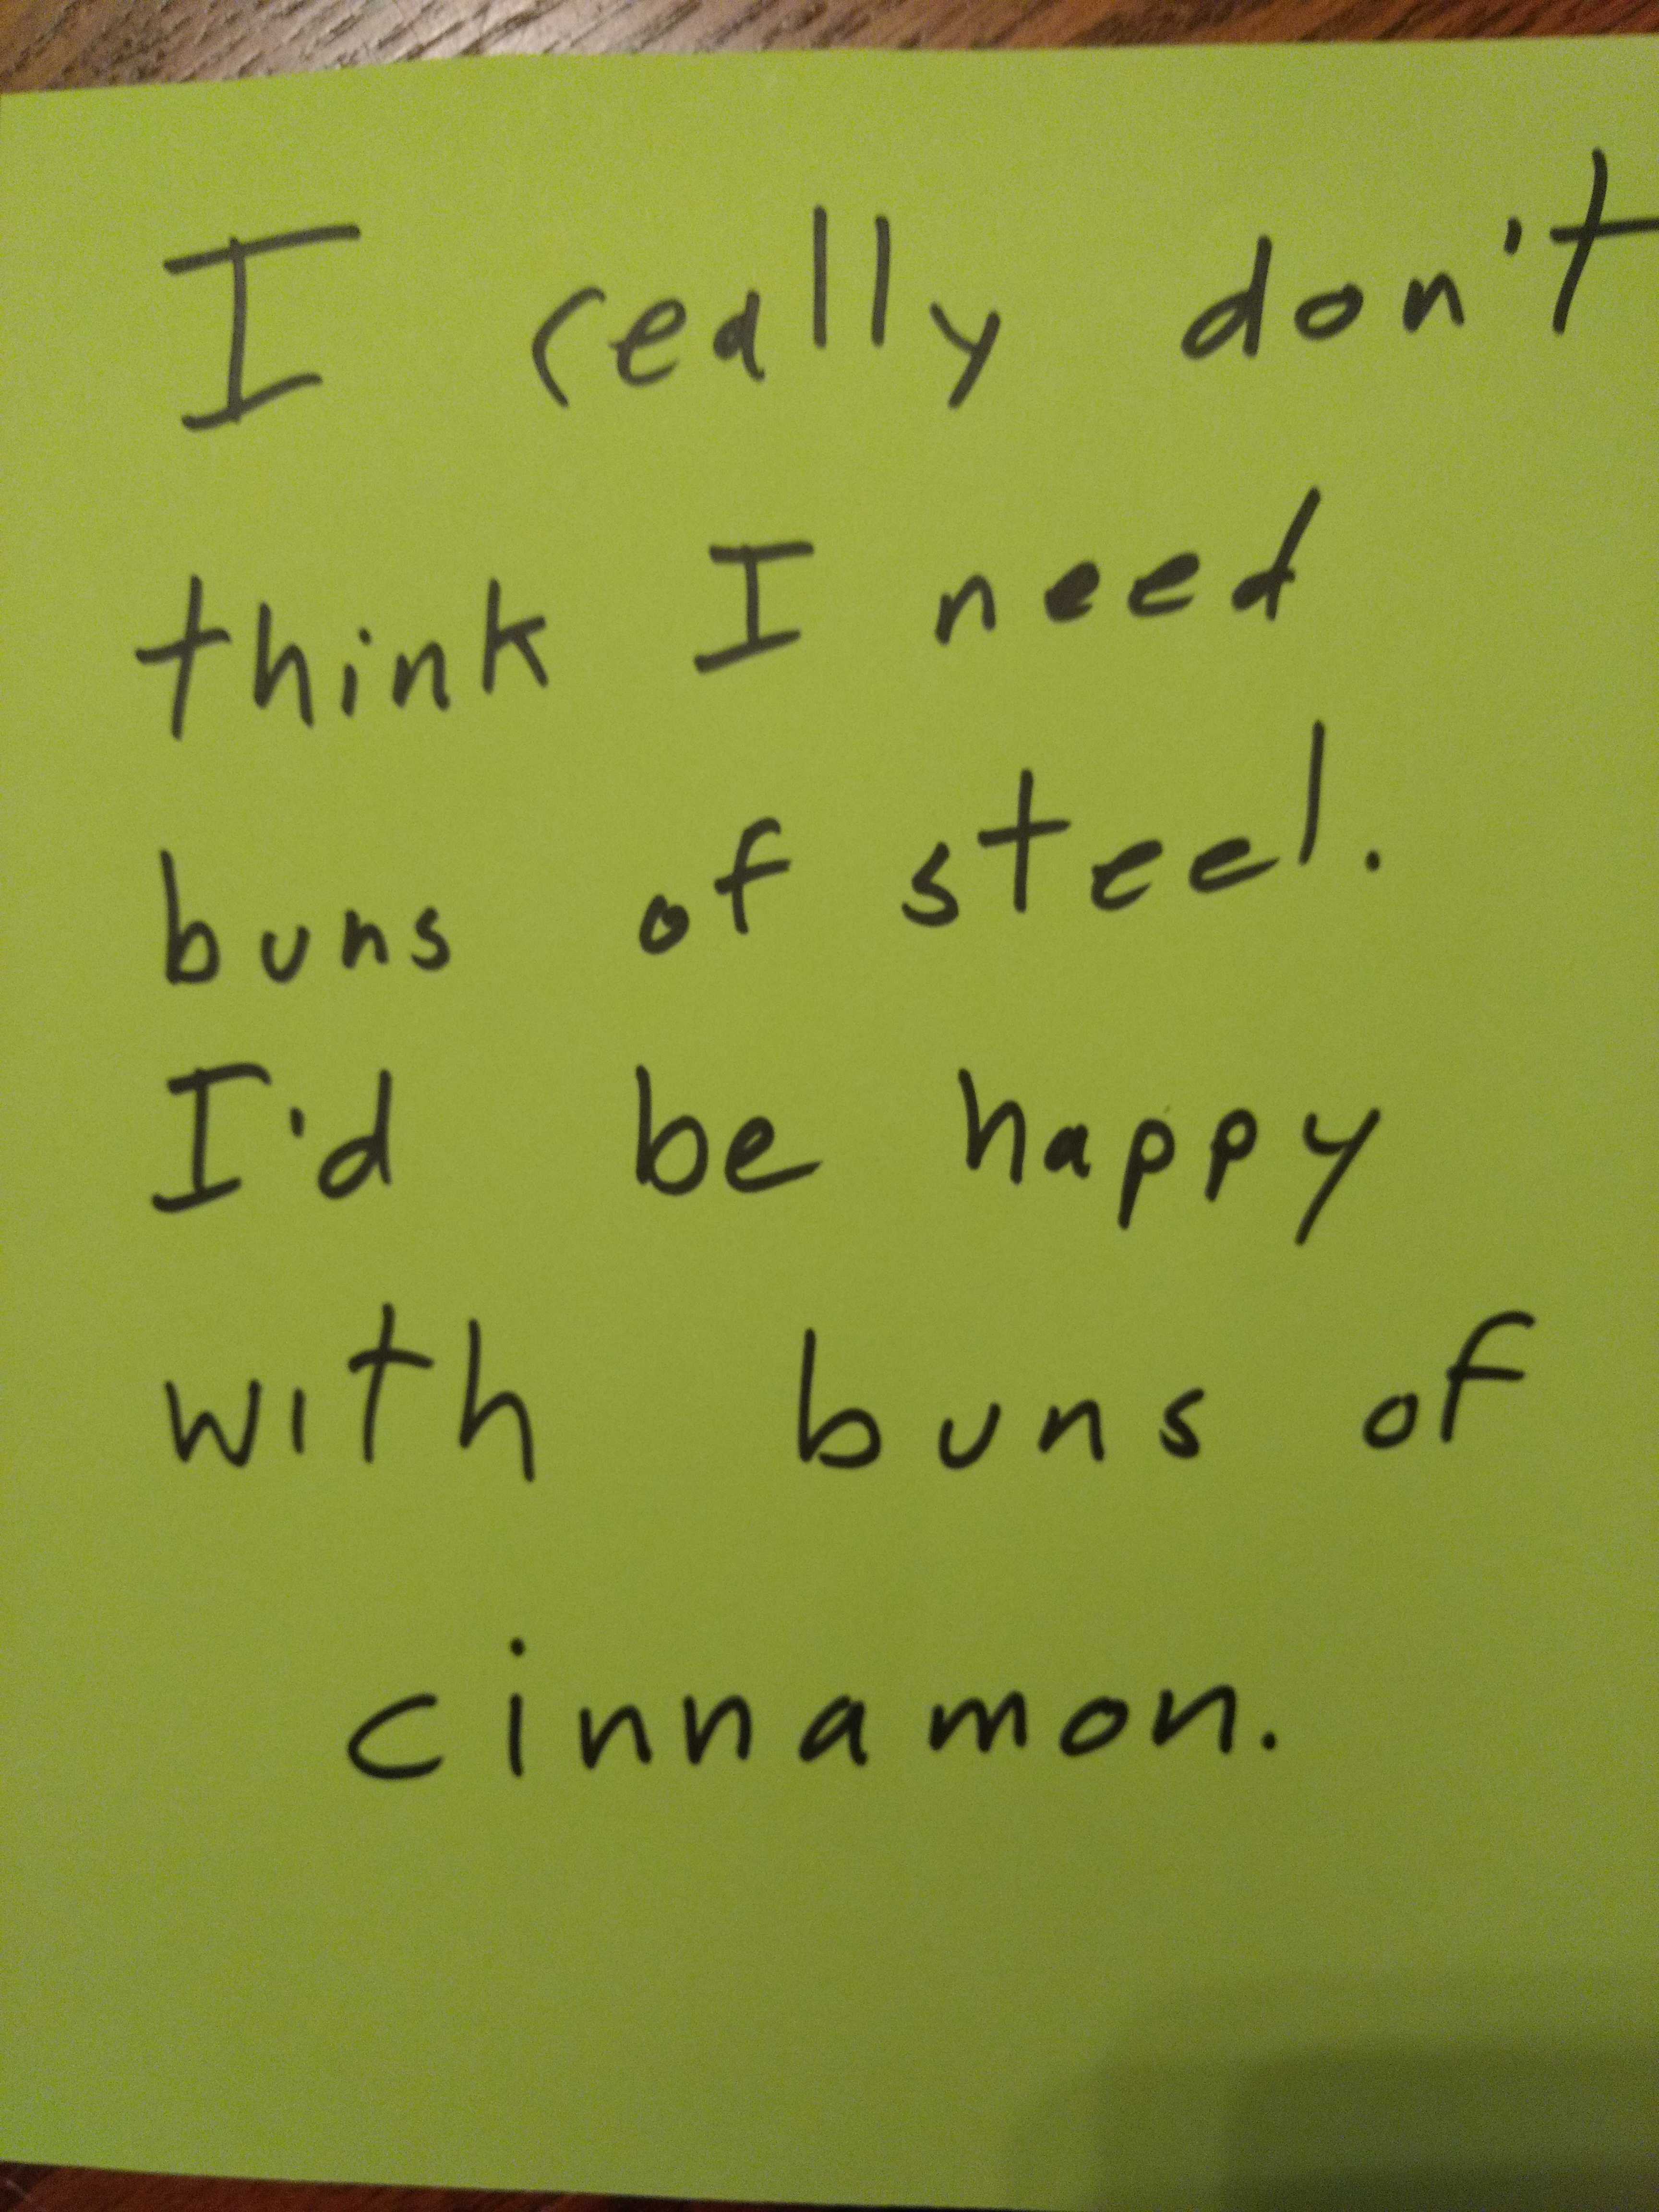 I really don't
think I need
buns of steel.
I'd be happy
with buns of
cinnamon.